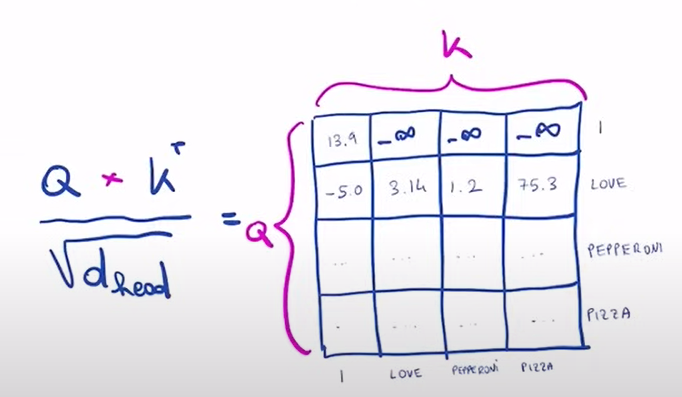 K
Q × Kᵀ
√d_head
=
Q
13.9 -∞ -∞ -∞ I
-5.0 3.14 1.2 75.3 LOVE
... ... ... ... PEPPERONI
. ... ... ... PIZZA
I LOVE PEPPERONI PIZZA